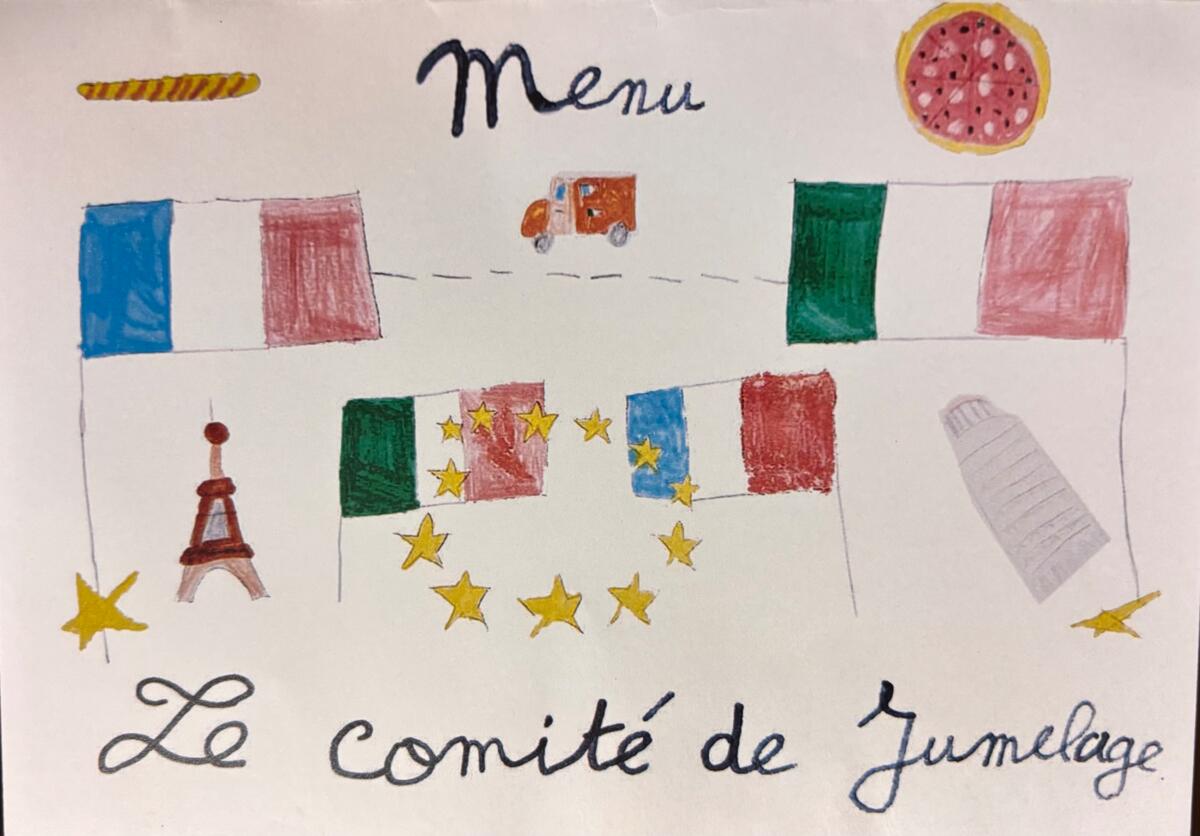 Menu
Le comité de Jumelage